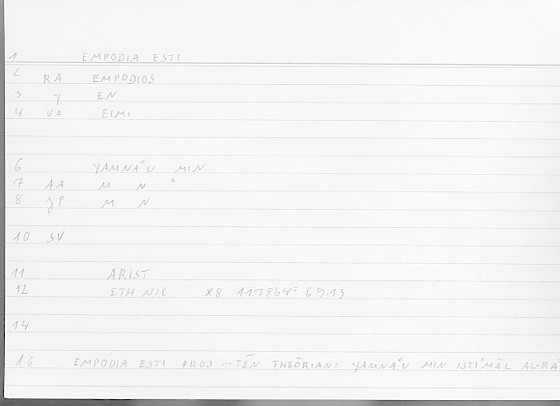 1 EMPODIA ESTI
2 RA EMPODIOS
3 Y EN
4 VA EIMI
6 YAMNAʿU MIN
7 AA M N ʿ
8 JP M N
10 SV
11 ARIST
12 ETH NIC X8 1178b4 = 69.13
14
16 EMPODIA ESTI PROS ... TĒN THEŌRIAN: YAMNAʿU MIN ISTIʿMĀL AL-RA